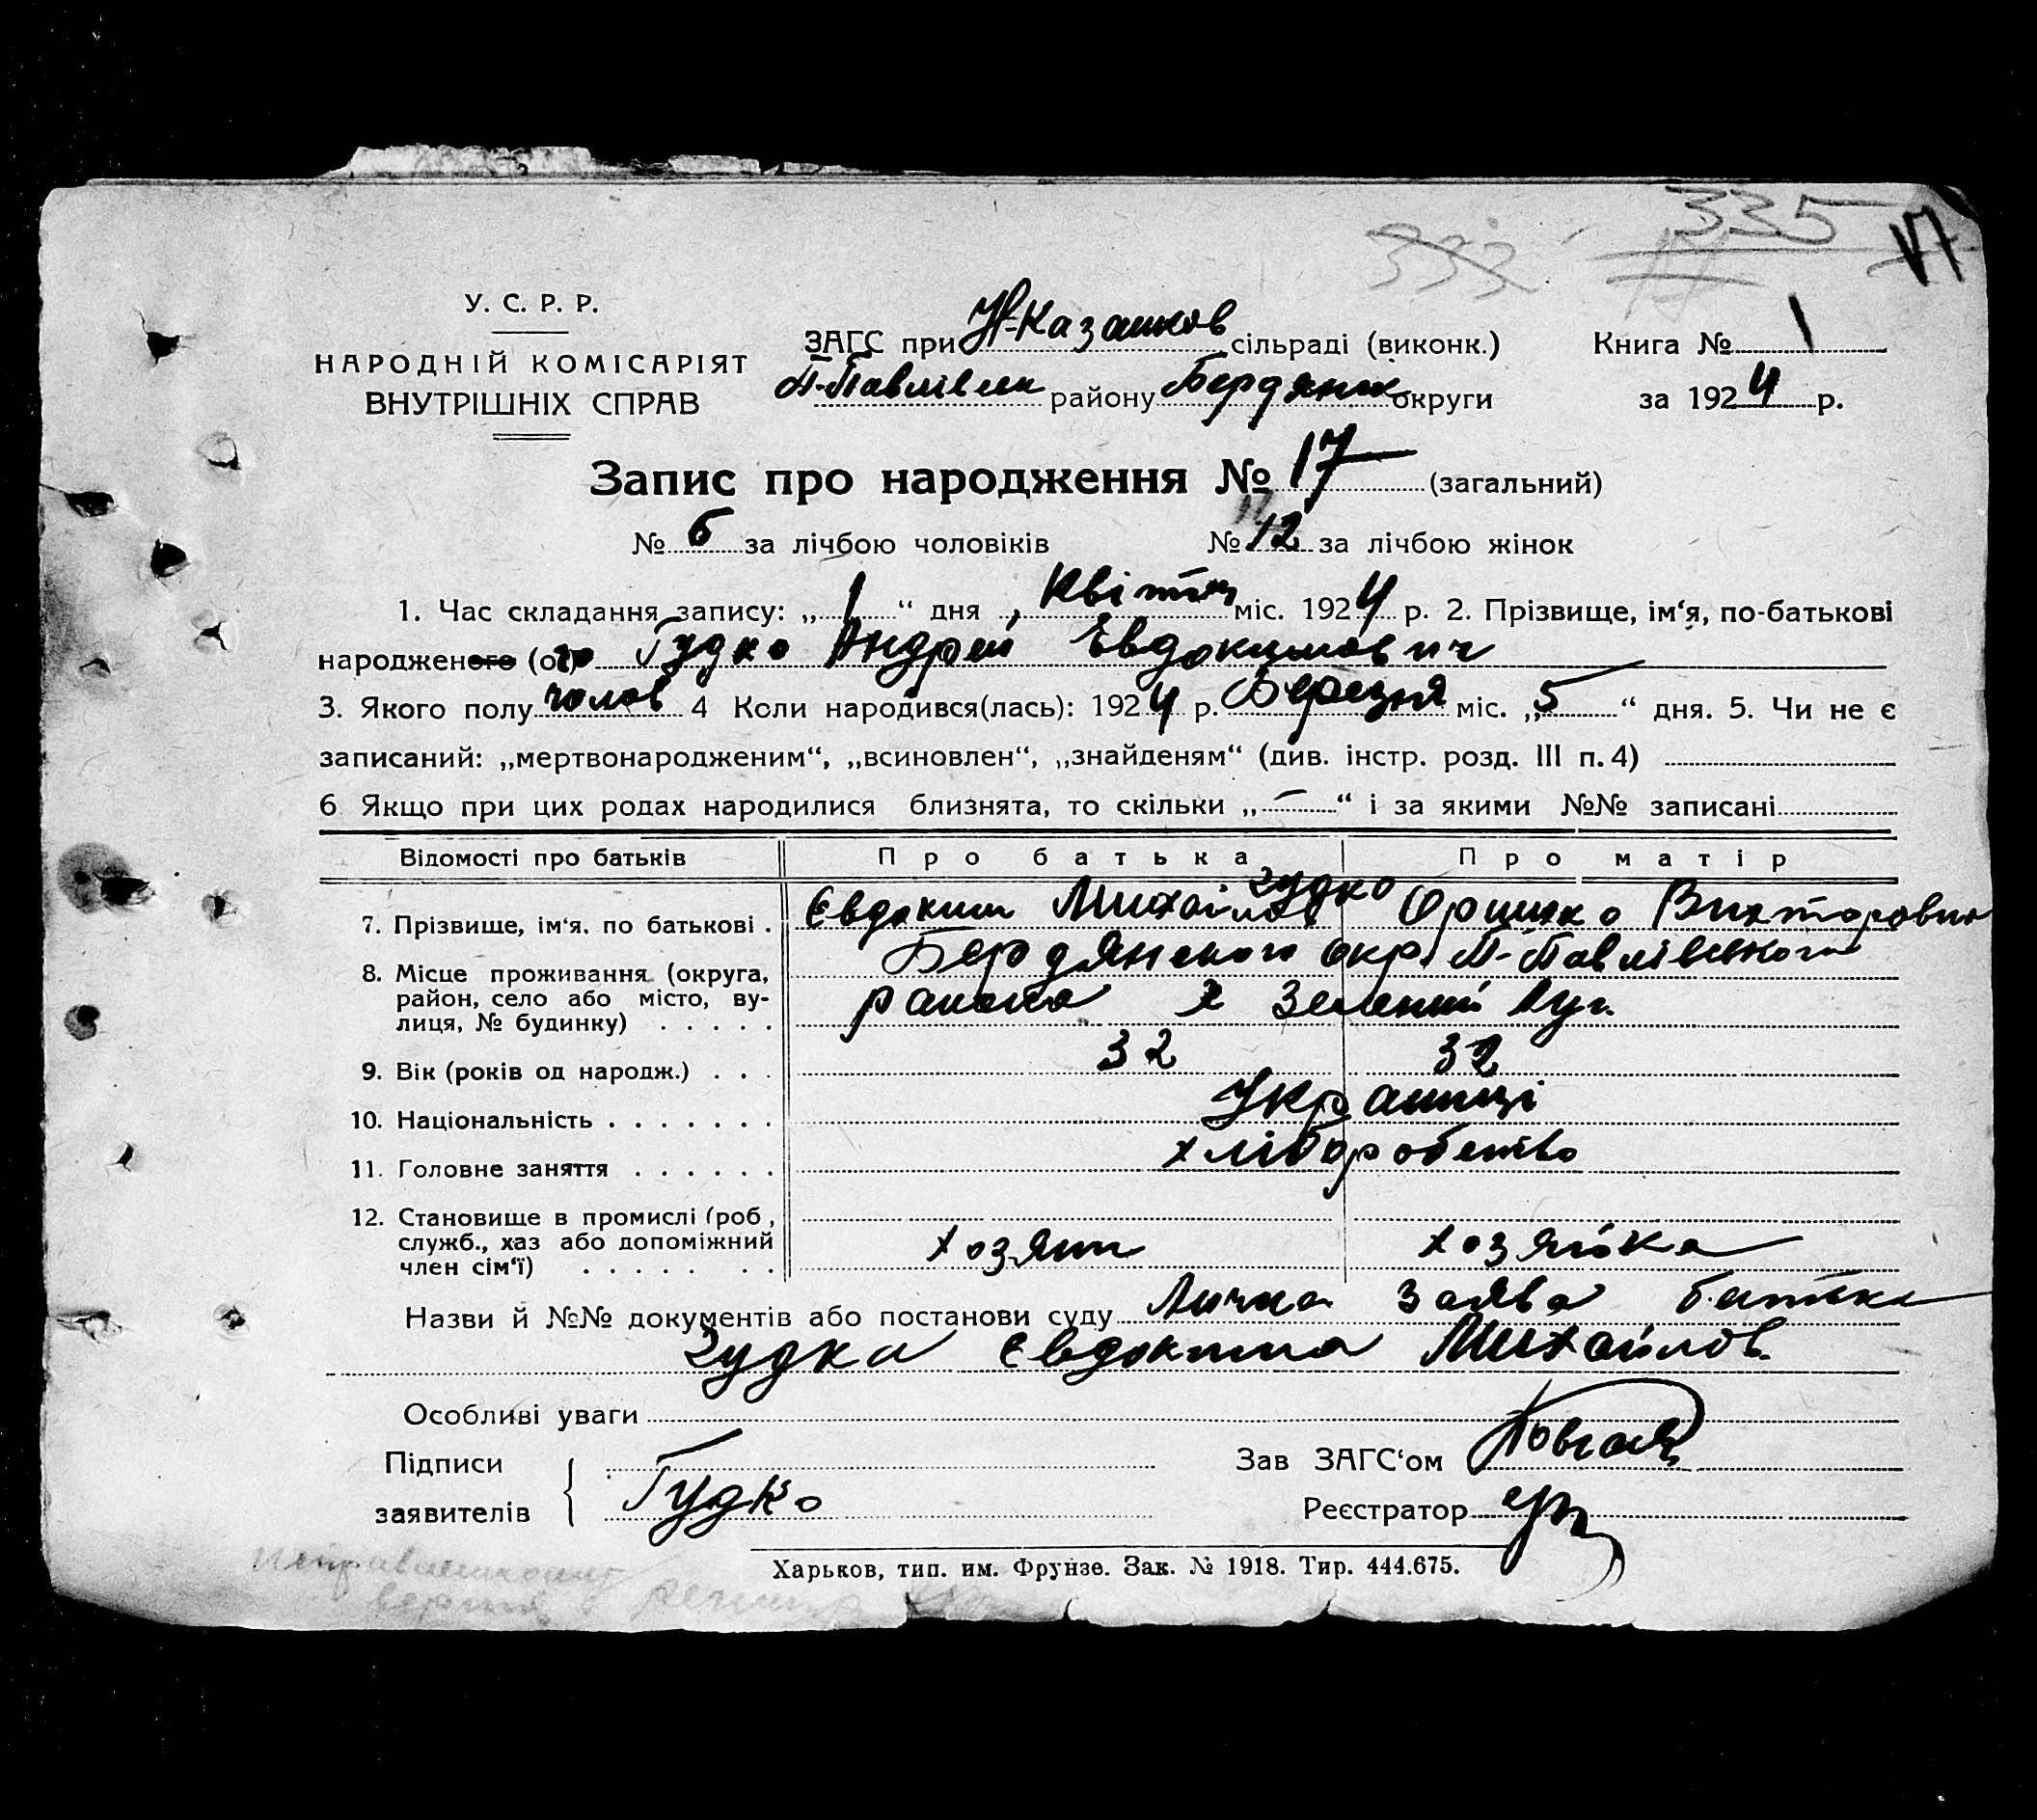 335
333
17
У. С. Р. Р.
НАРОДНІЙ КОМІСАРІЯТ
ВНУТРІШНІХ СПРАВ
ЗАГС при Н-Казанков сільраді (виконк.)
Книга № 1
П-Павлівськ району Бердянськ округи
за 1924 р.
Запис про народження № 17 (загальний)
№ 6 за лічбою чоловіків № 12 за лічбою жінок
1. Час складання запису: „ 1 “ дня „ Квітня міс. 1924 р. 2. Прізвище, ім‘я, по-батькові
народженого (ої) го Гудко Андрей Евдокимович
3. Якого полу чолов 4 Коли народився(лась): 1924 р. Березня міс. „ 5 “ дня. 5. Чи не є
записаний: „мертвонародженим“, „всиновлен“, „знайденям“ (див. інстр. розд. III п. 4)
6 Якщо при цих родах народилися близнята, то скільки „ — “ і за якими №№ записані
Відомості про батьків Про батька Про матір
7. Прізвище, ім‘я. по батькові . Євдоким Михайлов Гудко Оришко Викторовна
8. Місце проживання (округа, район, село або місто, ву- лиця, № будинку) . . . . . Бердянского окр. П-Павлівського
района х Зелений Луг.
9. Вік (років од народж.) . . . 32 32
10. Національність . . . . . . . Українці
11. Головне заняття . . . . . . хліборобство
12. Становище в промислі (роб, служб., хаз або допоміжний член сім‘ї) . . . . . . . хозяин хозяйка
Назви й №№ документів або постанови суду Лична заява батька
Гудка Євдокима Михайлов.
Особливі уваги
Підписи
заявителів
Гудко
Зав ЗАГС‘ом
Реєстратор
Харьков, тип. им. Фрунзе. Зак. № 1918. Тир. 444.675.